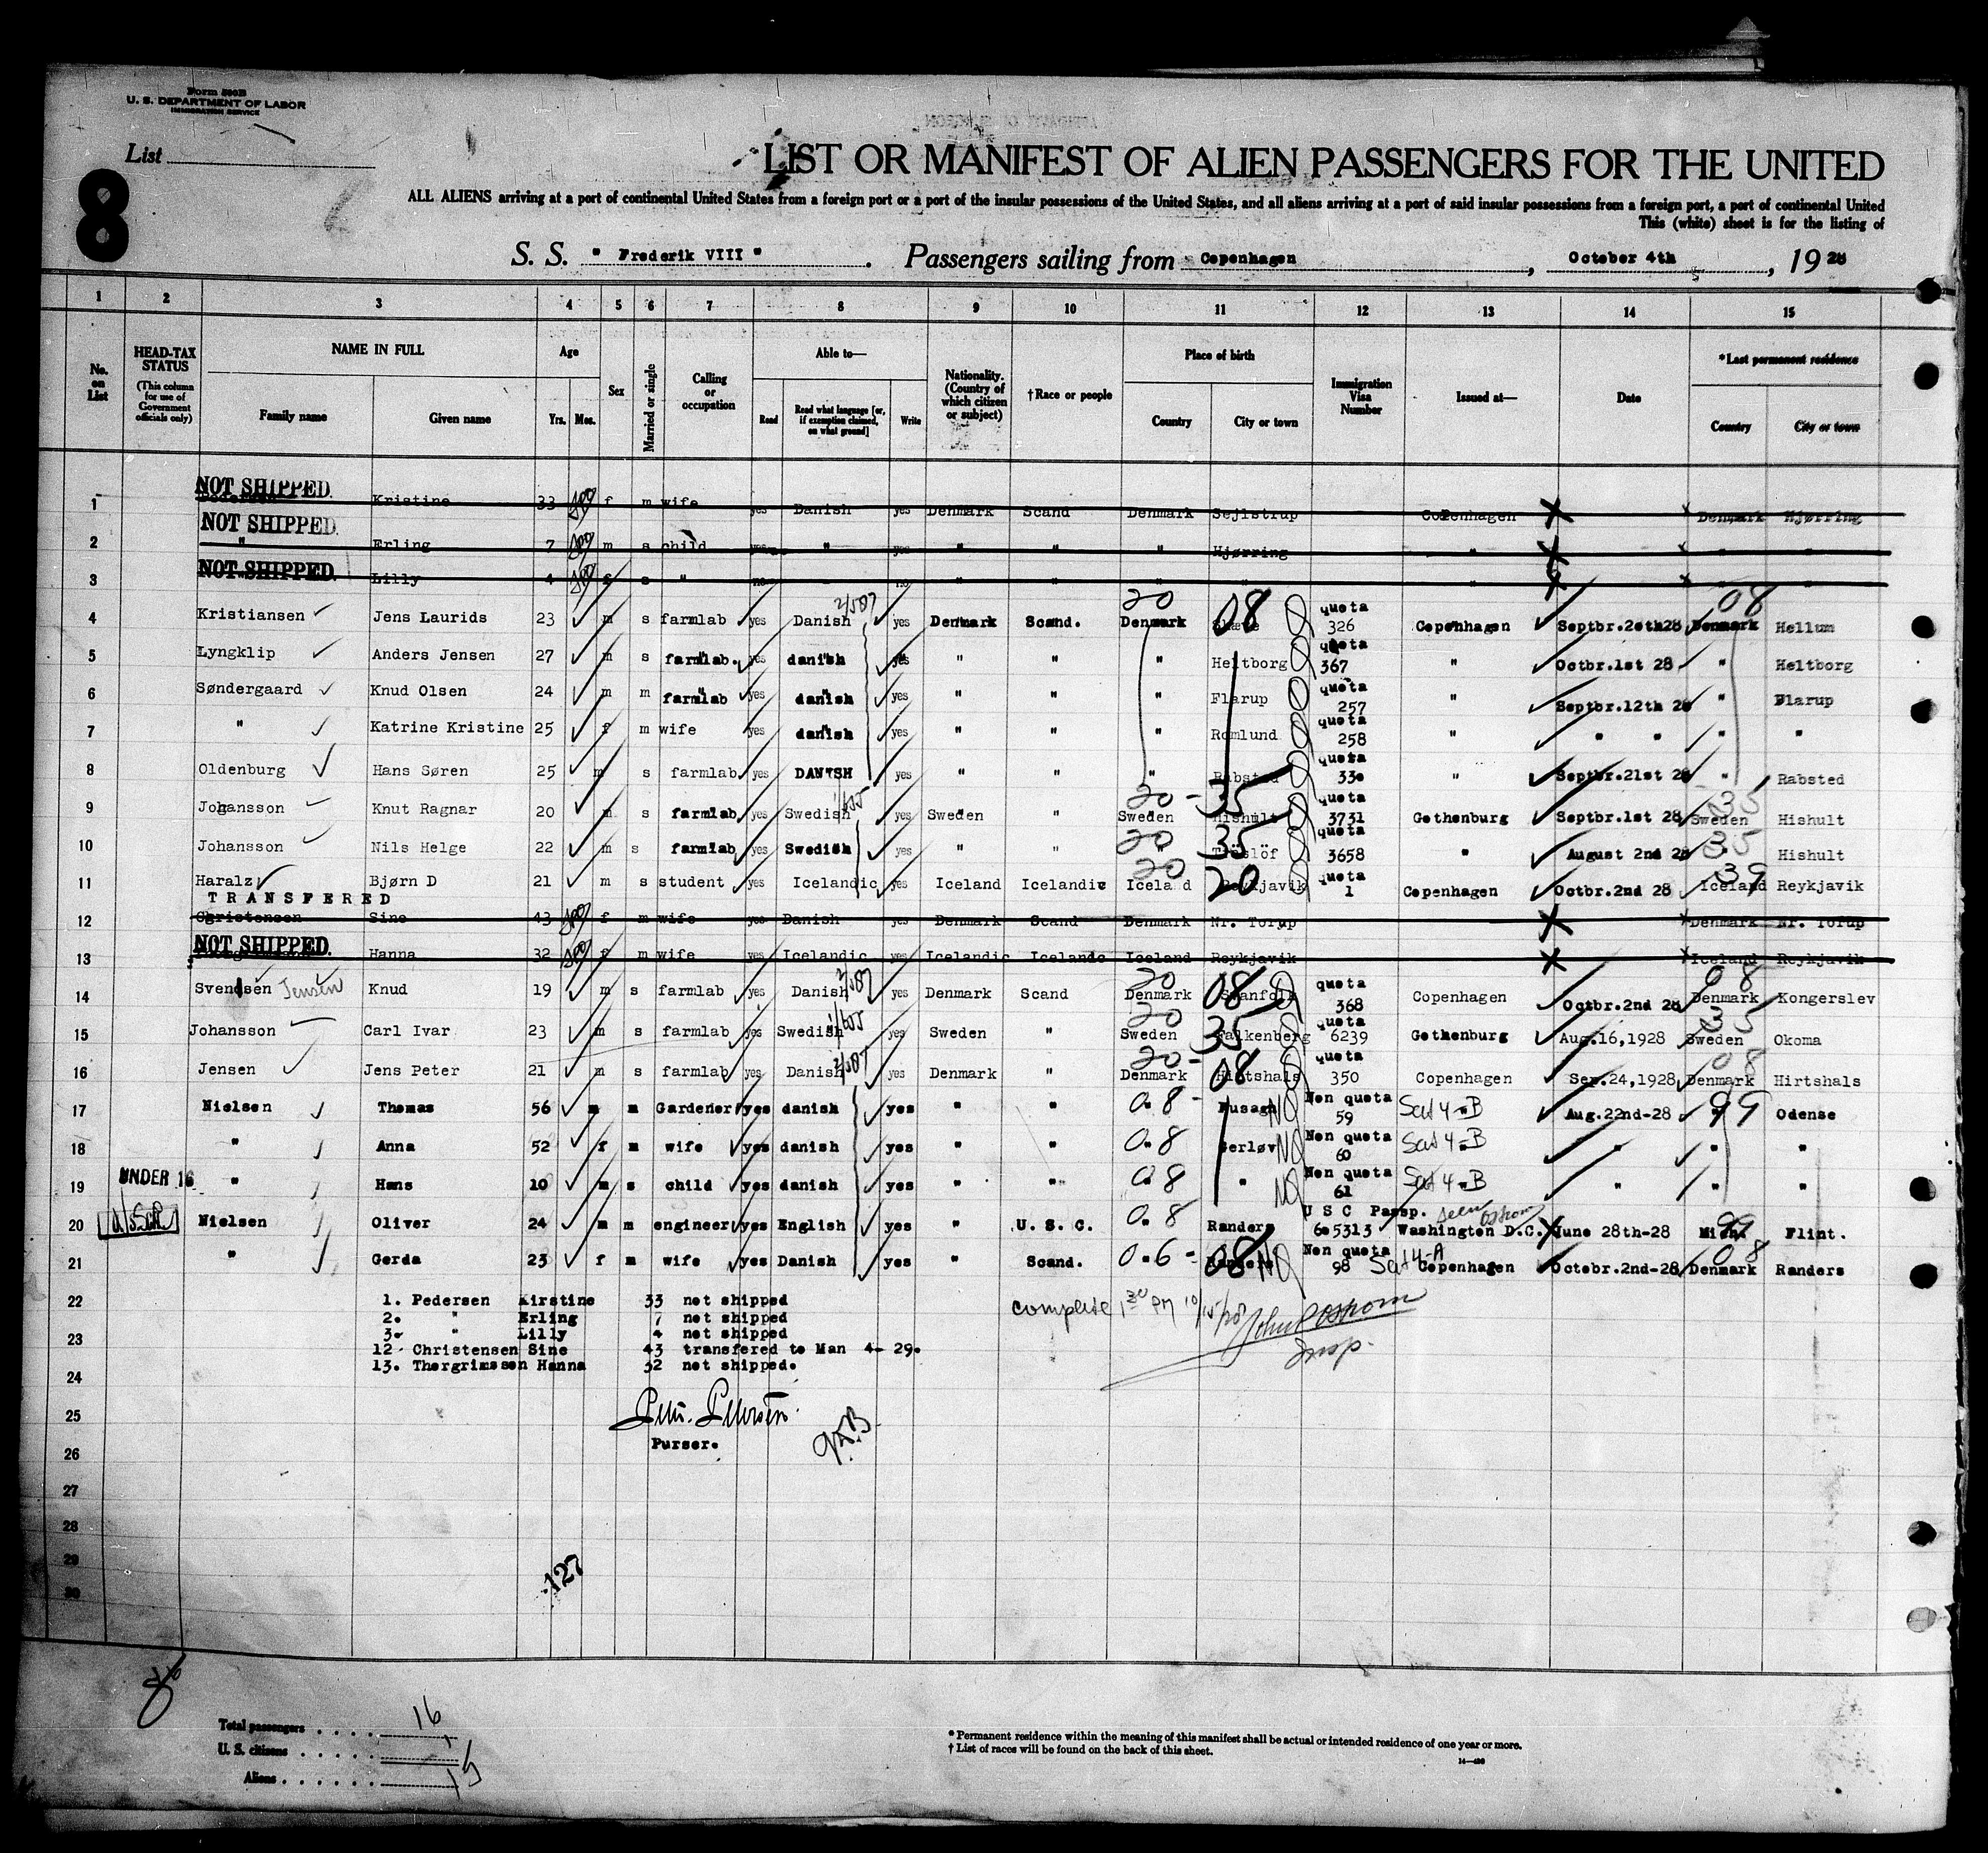 Form 500B
U. S. DEPARTMENT OF LABOR
IMMIGRATION SERVICE
List
8
LIST OR MANIFEST OF ALIEN PASSENGERS FOR THE UNITED
ALL ALIENS arriving at a port of continental United States from a foreign port or a port of the insular possessions of the United States, and all aliens arriving at a port of said insular possessions from a foreign port, a port of continental United
This (white) sheet is for the listing of
S. S. " Frederik VIII " . Passengers sailing from Copenhagen , October 4th , 19 28
1 2 3 4 5 6 7 8 9 10 11 12 13 14 15
No. on List
HEAD-TAX STATUS (This column for use of Government officials only)
NAME IN FULL Family name Given name
Age Yrs. Mos.
Sex
Married or single
Calling or occupation
Able to— Read Read what language [or, if exemption claimed, on what ground] Write
Nationality. (Country of which citizen or subject)
†Race or people
Place of birth Country City or town
Immigration Visa Number
Issued at—
Date
*Last permanent residence Country City or town
NOT SHIPPED.
1 Kristine 33 f m wife yes Danish yes Denmark Scand Denmark Sejlstrup Copenhagen Denmark Hjørring
NOT SHIPPED.
2 " Erling 7 m s child yes " yes " " " Hjørring " " "
NOT SHIPPED.
3 Lilly 4 f s " no no " " " " " " "
4 Kristiansen Jens Laurids 23 m s farmlab yes Danish 2/587 yes Denmark Scand. 20 Denmark 08 quota 326 Copenhagen Septbr.20th28 08 Denmark Hellum
5 Lyngklip Anders Jensen 27 m s farmlab. yes danish yes " " " Heltborg quota 367 " Octbr.1st 28 " Heltborg
6 Søndergaard Knud Olsen 24 m m farmlab yes danish yes " " " Flarup quota 257 " Septbr.12th 28 " Flarup
7 " Katrine Kristine 25 f m wife yes danish yes " " " Romlund quota 258 " " " " "
8 Oldenburg Hans Søren 25 m s farmlab yes DANISH yes " " " Rabsted quota 330 " Septbr.21st 28 " Rabsted
9 Johansson Knut Ragnar 20 m s farmlab yes Swedish yes Sweden " 20 - Sweden 35 Hishult quota 3731 Gothenburg Septbr.1st 28 35 Sweden Hishult
10 Johansson Nils Helge 22 m s farmlab yes Swedish yes " " 20 " 35 quota 3658 " August 2nd 28 35 " Hishult
11 Haralz Bjørn D 21 m s student yes Icelandic yes Iceland Icelandic 20 Iceland 20 Reykjavik quota 1 Copenhagen Octbr.2nd 28 39 Iceland Reykjavik
TRANSFERED
12 Christensen Sine 43 f m wife yes Danish yes Denmark Scand Denmark Nr. Torup Denmark Nr. Torup
NOT SHIPPED.
13 Hanna 32 f m wife yes Icelandic yes Icelandic Icelandc Iceland Reykjavik Iceland Reykjavik
14 Svendsen Jensen Knud 19 m s farmlab yes Danish 2/587 yes Denmark Scand 20 Denmark 08 quota 368 Copenhagen Octbr.2nd 28 08 Denmark Kongerslev
15 Johansson Carl Ivar 23 m s farmlab yes Swedish yes Sweden " 20 Sweden 35 Falkenberg quota 6239 Gothenburg Aug.16,1928 35 Sweden Okoma
16 Jensen Jens Peter 21 m s farmlab yes Danish 2/587 yes Denmark " 20 - Denmark 08 Hirtshals quota 350 Copenhagen Sep.24,1928 08 Denmark Hirtshals
17 Nielsen Thomas 56 m m Gardener yes danish yes " " 0.8 - NQ Non quota 59 Sec 4-B Aug.22nd-28 99 " Odense
18 " Anna 52 f m wife yes danish yes " " 0.8 Gerløv NQ Non quota 60 Sec 4-B " " "
UNDER 16
19 " Hans 10 m s child yes danish yes " " 0.8 " NQ Non quota 61 Sec 4-B " " "
20 Nielsen Oliver 24 m m engineer yes English yes " U. S. C. 0.8 Randers U S C Passp. 605313 seen Ostrom Washington D.C. June 28th-28 99 Mich. Flint.
21 " Gerda 23 f m wife yes Danish yes " Scand. 0.6 - 08 Randers NQ Non quota 98 Sec 4-A Copenhagen Octobr.2nd-28 08 Denmark Randers
22 1. Pedersen Kirstine 33 not shipped
2. " Erling 7 not shipped
complete 1 30 PM 10/15/28 John C Ostrom
Insp.
23 3. " Lilly 4 not shipped
12 Christensen Sine 43 transfered to Man 4- 29.
13. Thorgrimsson Hanna 32 not shipped.
24
25 Petersen
Purser.
26
27
28
29
30
127
Total passengers . . . . 16
U. S. citizens . . . . .
Aliens . . . . . . 15
* Permanent residence within the meaning of this manifest shall be actual or intended residence of one year or more.
† List of races will be found on the back of this sheet.